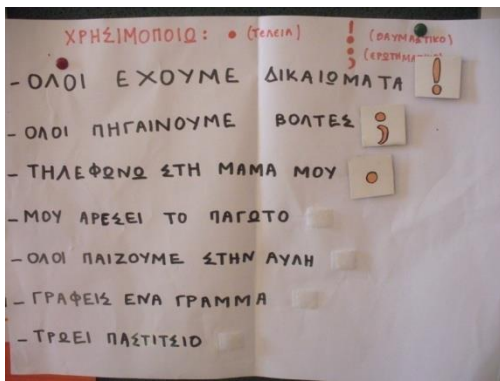 ΧΡΗΣΙΜΟΠΟΙΩ: • (ΤΕΛΕΙΑ) ! (ΘΑΥΜΑΣΤΙΚΟ)
; (ΕΡΩΤΗΜΑΤΙΚΟ)
- ΟΛΟΙ ΕΧΟΥΜΕ ΔΙΚΑΙΩΜΑΤΑ !
- ΟΛΟΙ ΠΗΓΑΙΝΟΥΜΕ ΒΟΛΤΕΣ ;
- ΤΗΛΕΦΩΝΩ ΣΤΗ ΜΑΜΑ ΜΟΥ •
- ΜΟΥ ΑΡΕΣΕΙ ΤΟ ΠΑΓΩΤΟ
- ΟΛΟΙ ΠΑΙΖΟΥΜΕ ΣΤΗΝ ΑΥΛΗ
- ΓΡΑΦΕΙΣ ΕΝΑ ΓΡΑΜΜΑ
- ΤΡΩΕΙ ΠΑΣΤΙΤΣΙΟ